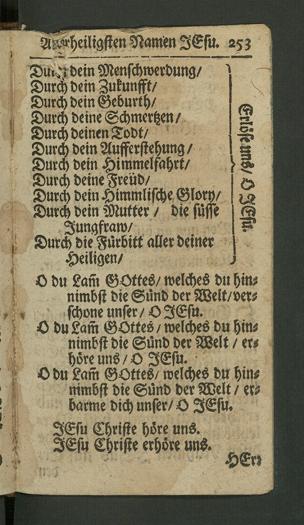 Allerheiligsten Namen JEsu. 253
Durch dein Menschwerdung/
Durch dein Zukunfft/
Durch dein Geburth/
Durch deine Schmertzen/
Durch deinen Todt/
Durch dein Aufferstehung/
Durch dein Himmelfahrt/
Durch deine Freüd/
Durch dein Himmlische Glory/
Durch dein Mutter / die süsse
Jungfraw/
Durch die Fürbitt aller deiner
Heiligen/
Erlöse uns/ O JEsu.
O du Lam̃ GOttes/ welches du hin-
nimbst die Sünd der Welt/ ver-
schone unser/ O JEsu.
O du Lam̃ GOttes/ welches du hin-
nimbst die Sünd der Welt / er-
höre uns / O JEsu.
O du Lam̃ GOttes/ welches du hin-
nimbst die Sünd der Welt/ er-
barme dich unser/ O JEsu.
JEsu Christe höre uns.
JEsu Christe erhöre uns.
HErr